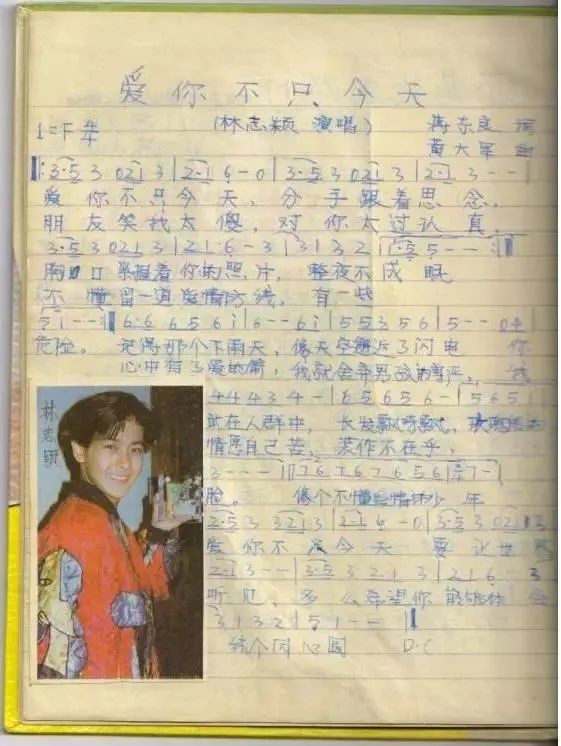 爱你不只今天
1=F 4/4 (林志颖 演唱) 蒋东良 词
黄大军 曲
‖: 3·5 3 021 3 | 2·1 6 - 0 | 3·5 3 021 3 | 2·1 3 - - |
爱 你 不 只 今 天, 分 手 跟 着 思 念,
朋 友 笑 我 太 傻, 对 你 太 过 认 真,
3·5 3 021 3 | 21·6 - 3 | 3 1 3 2 | 1·5 5 - - :‖
胸口 紧握着你的照片, 整夜不成眠
不 懂 留一道爱情防线, 有一些
5 1 - - | 6·6 6 5 6 i | 6 - - 6 i | 5 5 3 5 6 | 5 - -
危险。 记得那个下雨天, 像天空逼近了闪电 你
心中有了爱的箭, 我就舍弃男孩的尊严, 我
4 4 4 3 4 - | 6 5 6 5 6 - | 5 6 5
站在人群中, 长发飘呀飘,
情愿自己苦, 装作不在乎,
3 - - - |
脸。 像个不懂爱情的少年
2·5 3 321 3 | 2·1 6 - 0 | 3·5 3 021 3
爱 你 不 只 今 天 要 让 世 界
2·1 3 - - | 3·5 3 2 1 3 | 2 1 6 3
听见, 多么希望你能够体会
3 1 3 2 | 5 1 - - ‖
这个同心圆 D.C
林志颖